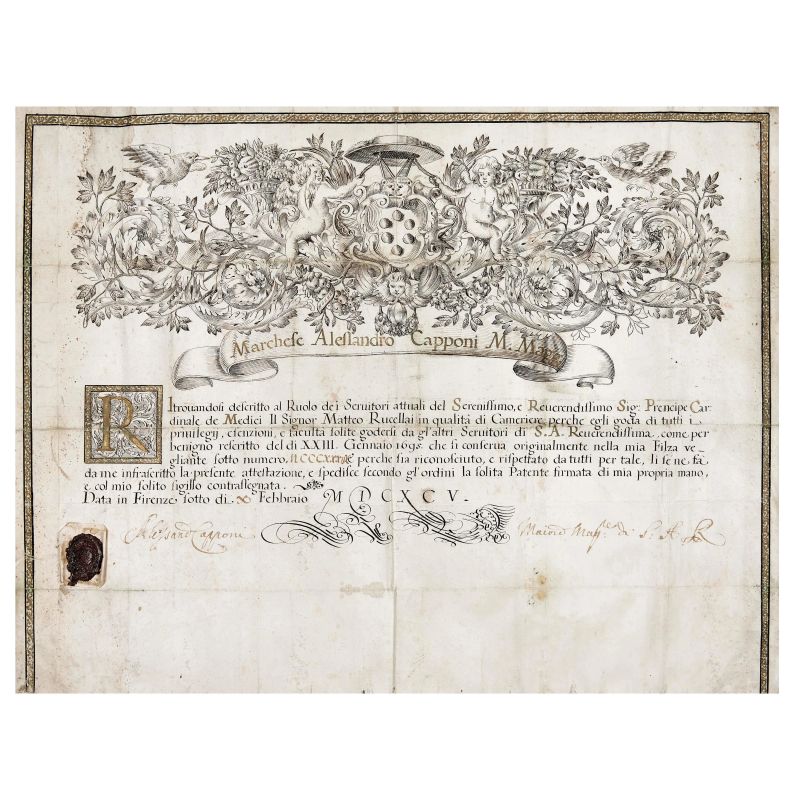 Marchese Alessandro Capponi M. Magg.
Ritrouandosi descritto al Ruolo dei Seruitori attuali del Serenissimo, e Reuerendissimo Sig: Prencipe Car
dinale de Medici Il Signor Matteo Rucellai in qualità di Cameriere perche egli goda di tutti i
priuilegij, esenzioni, e facultà solite godersi da gl'altri Seruitori di S.A. Reuerendissima come per
benigno rescritto del dì XXIII. Giennaio 1695 che si conserua originalmente nella mia Filza ve-
gliante sotto numero perche sia riconosciuto, e rispettato da tutti per tale, li se ne fà
da me infrascritto la presente attestazione, e spedisce secondo gl'ordini la solita Patente firmata di mia propria mano,
e col mio solito sigillo contrassegnata.
Data in Firenze sotto dì X Febbraio MDCXCV.
Aless.and Capponi Maiord Magg.e di S: A R